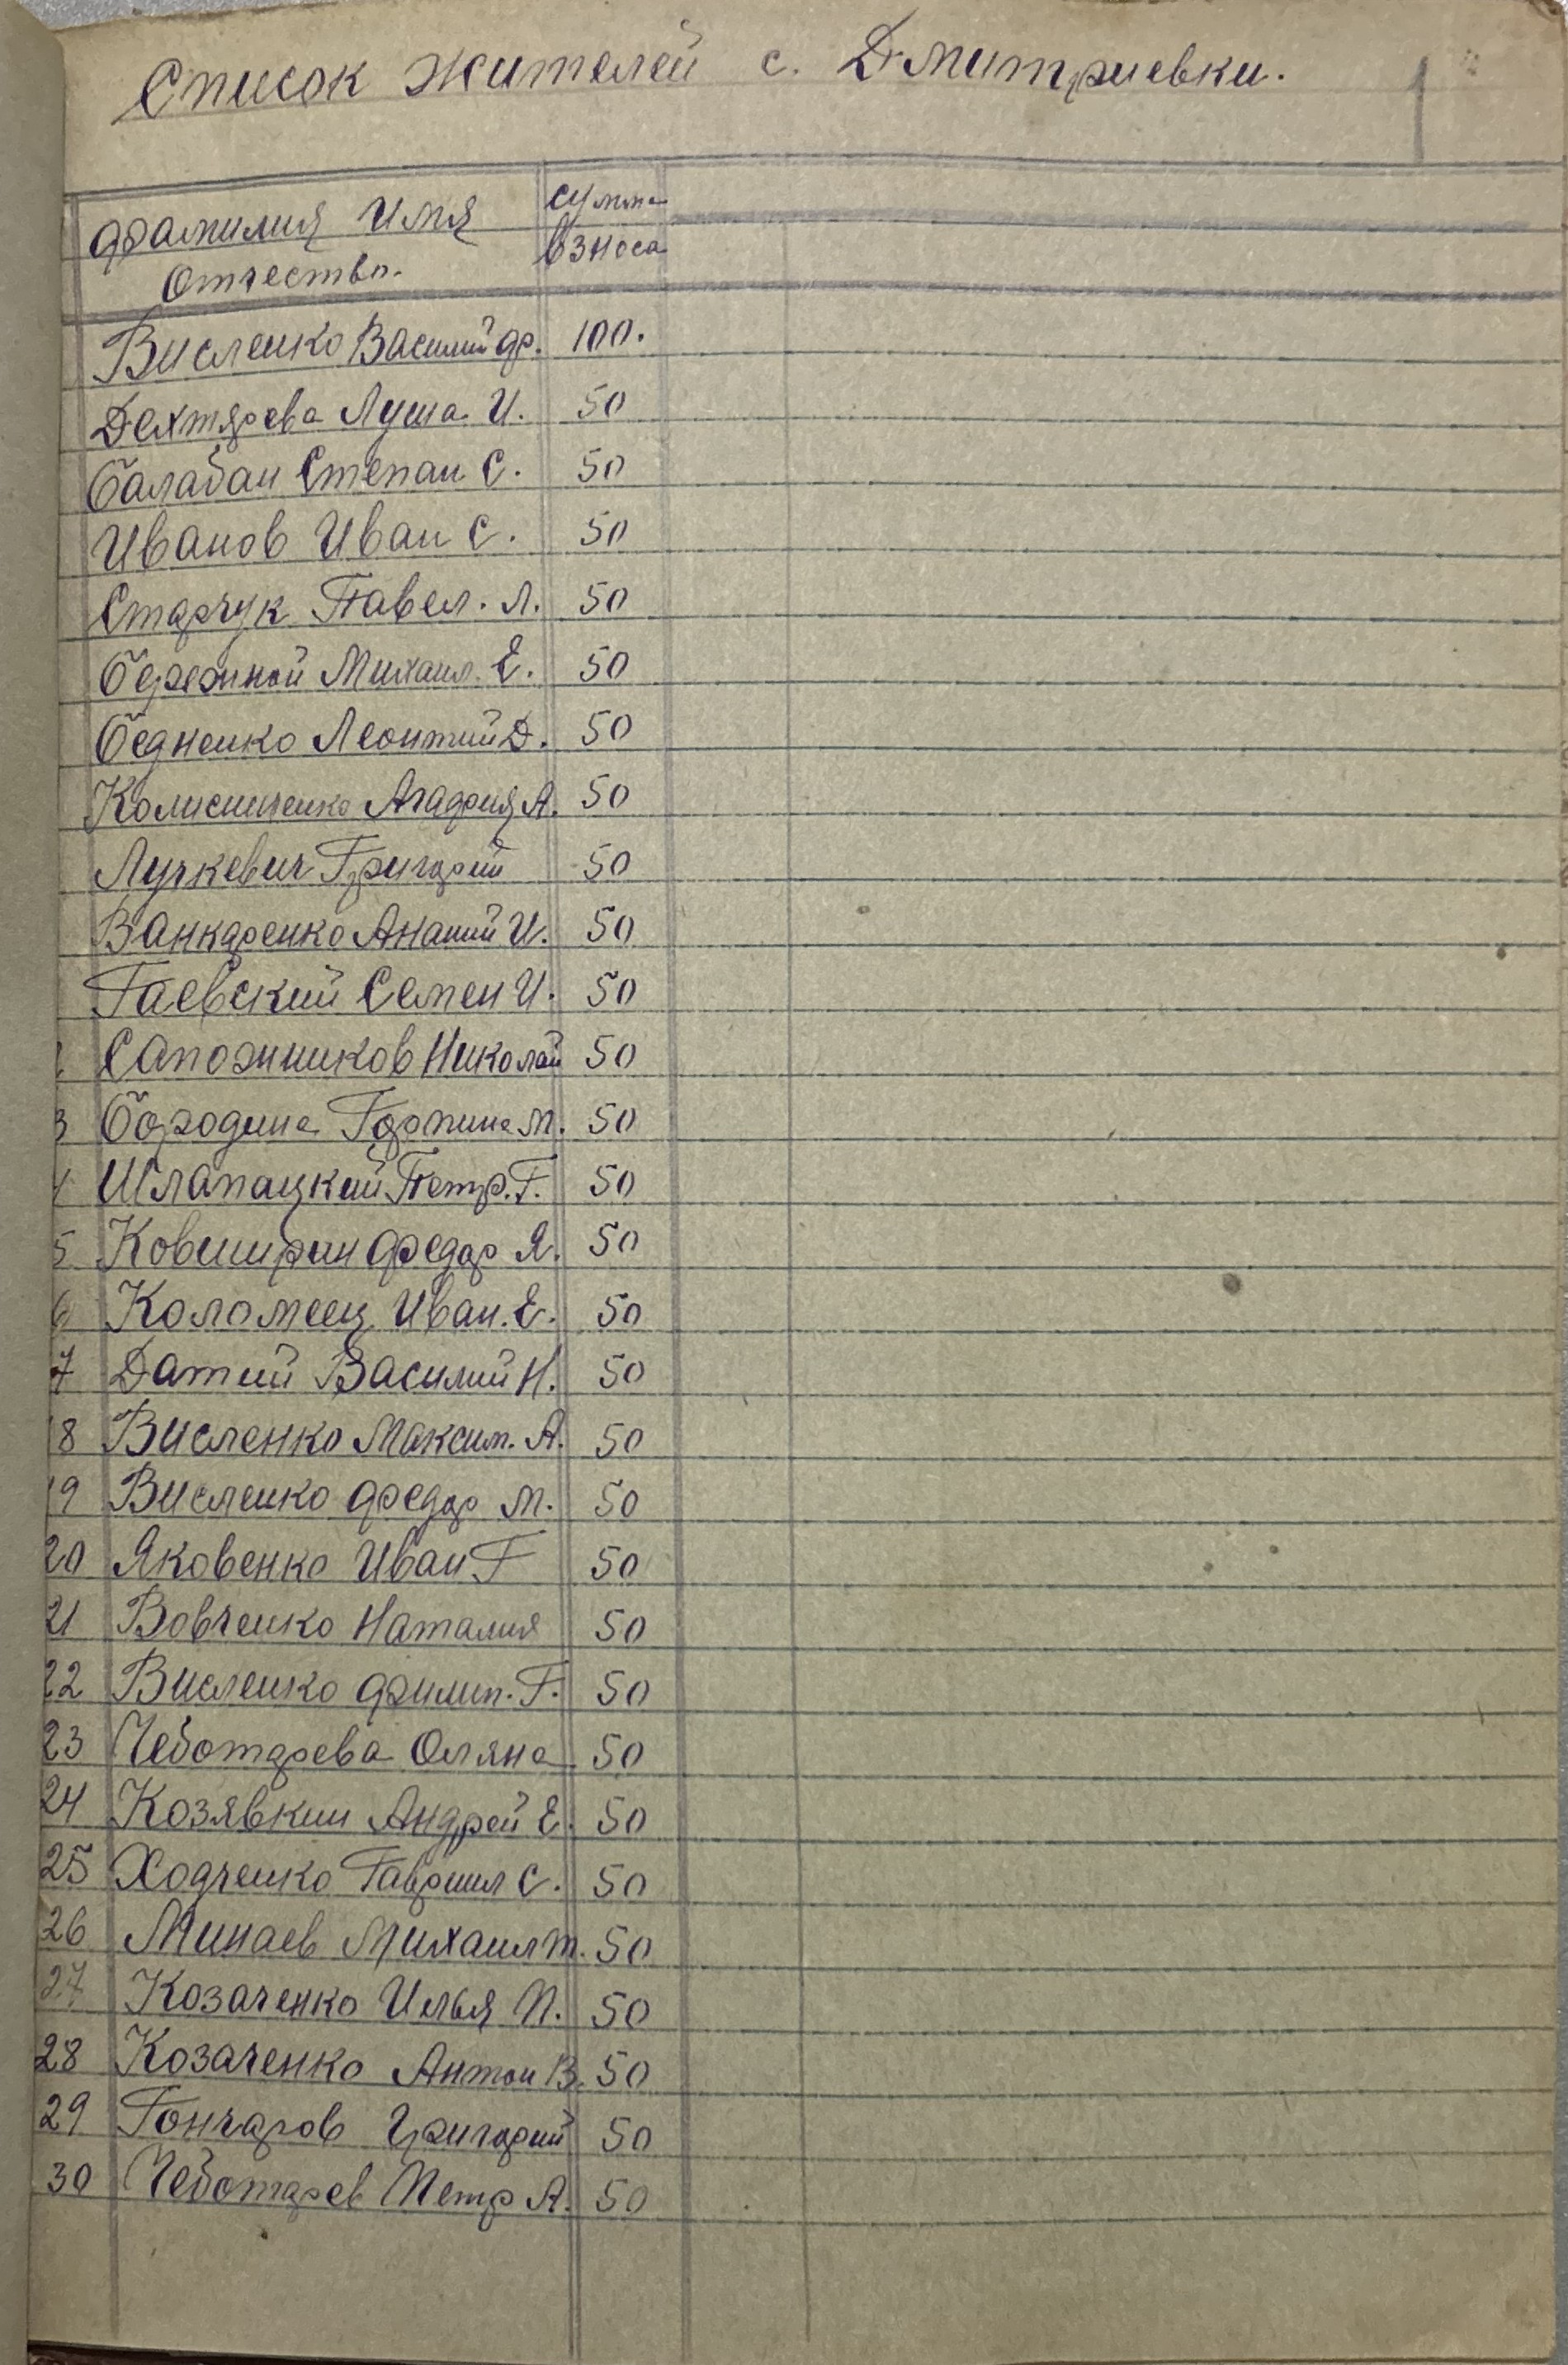 Список жителей с. Дмитриевки.
1
Фамилия Имя Отчество. сумма взноса
Висленко Василий Ф. 100.
Дехтярева Луша И. 50
Балабан Степан С. 50
Иванов Иван С. 50
Старчук Павел. Л. 50
Бережной Михаил. Е. 50
Бедненко Леонтий Д. 50
Колисниченко Агафия А. 50
Лучкевич Григорий 50
Ванкаренко Ананий И. 50
Гаевский Семен И. 50
Сапожников Николай 50
3 Бородина Горпина М. 50
4 Шлапацкий Петр. Г. 50
5 Ковширин Федор Я. 50
6 Коломеец Иван. Е. 50
7 Датий Василий Н. 50
18 Висленко Максим. А. 50
19 Висленко Федор М. 50
20 Яковенко Иван Г 50
21 Вовченко Наталия 50
22 Висленко Филип. Г. 50
23 Чеботарева Оляна 50
24 Козявкин Андрей Е. 50
25 Ходченко Гавриил С. 50
26 Минаев Михаил Т. 50
27 Козаченко Илья П. 50
28 Козаченко Антон В. 50
29 Гончаров Григорий 50
30 Чеботарев Петр А. 50